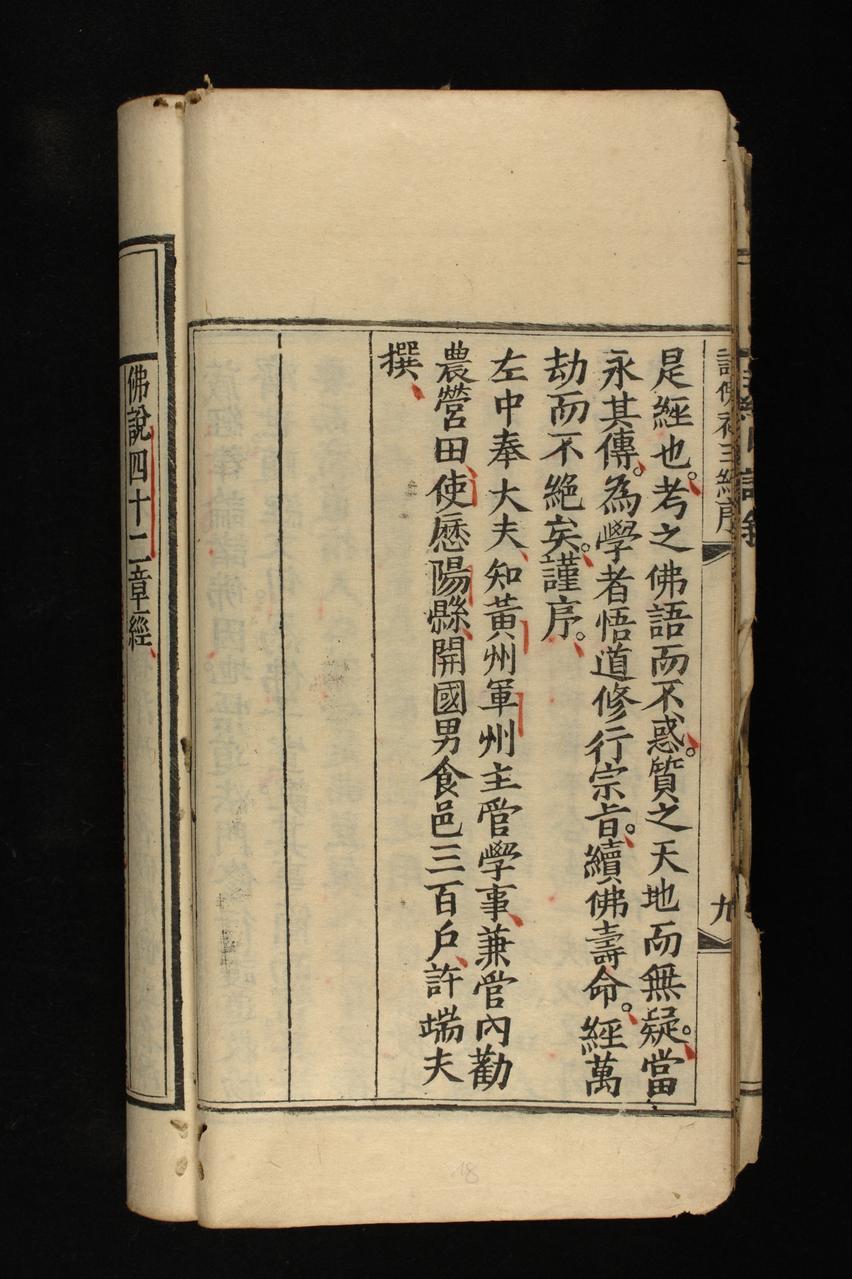 註佛祖三經序
九
是經也。考之佛語而不惑。質之天地而無疑。當
永其傳。為學者悟道修行宗旨。續佛壽命。經萬
劫而不絕矣。謹序。
左中奉大夫知黃州軍州主管學事兼管內勸
農營田使歷陽縣開國男食邑三百戶許端夫
撰
佛說四十二章經
18